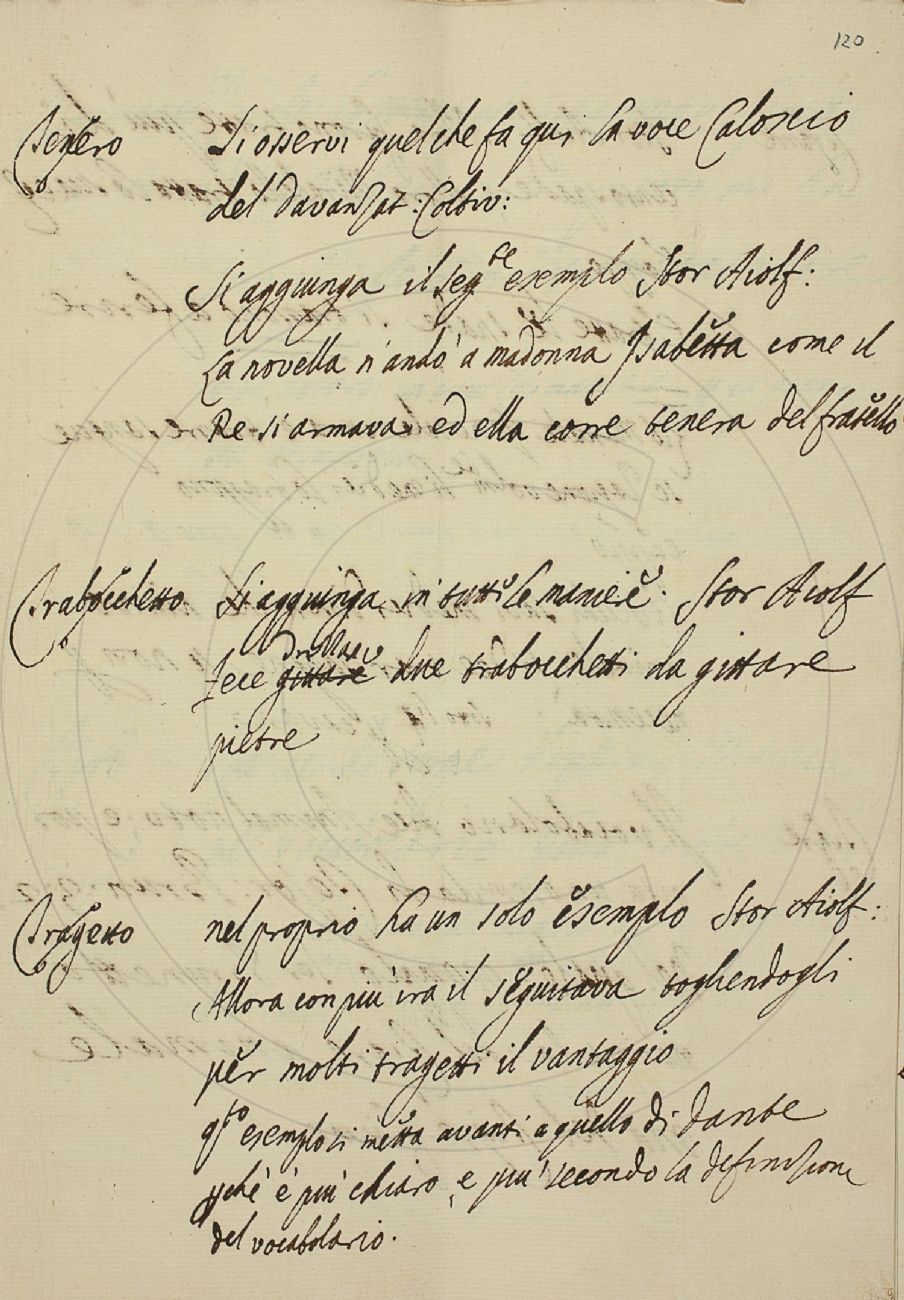 120
Tenero Si osservi quel che fa qui la voce Caloscio
del Davanzat: Coltiv:
Si aggiunga il seg.te esemplo Stor Aiolf:
La novella n'andò a madonna Isabetta come il
Re si armava ed ella corre tenera del fratello
Trabocchetto Si aggiunga in tutte le maniere. Stor Aiolf
drizzare
Fece gittare due trabocchetti da gittare
pietre
Tragetto nel proprio ha un solo esemplo Stor Aiolf:
Allora con più ira il seguitava togliendogli
per molti tragetti il vantaggio
q.to esemplo si metta avanti a quello di Dante
pchè è più chiaro, e più secondo la definizione
del vocabolario.